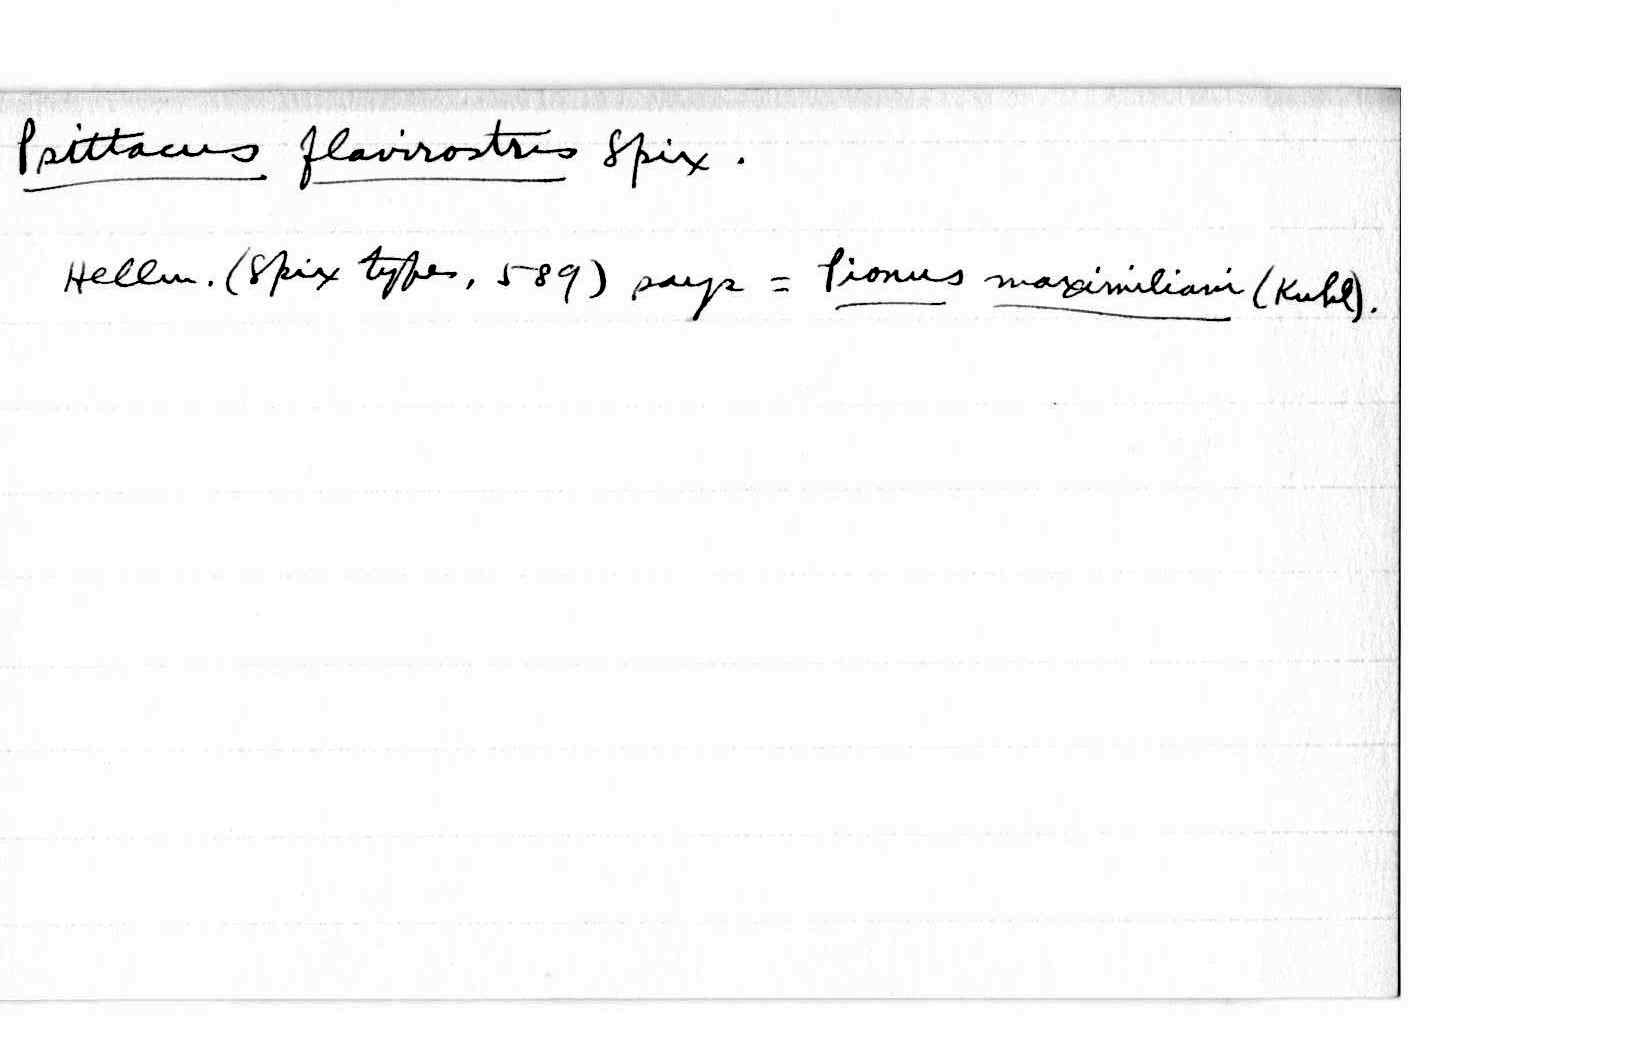 Psittacus flavirostris Spix.
Hellm. (Spix types, 589) says = Pionus maximiliani (Kuhl).